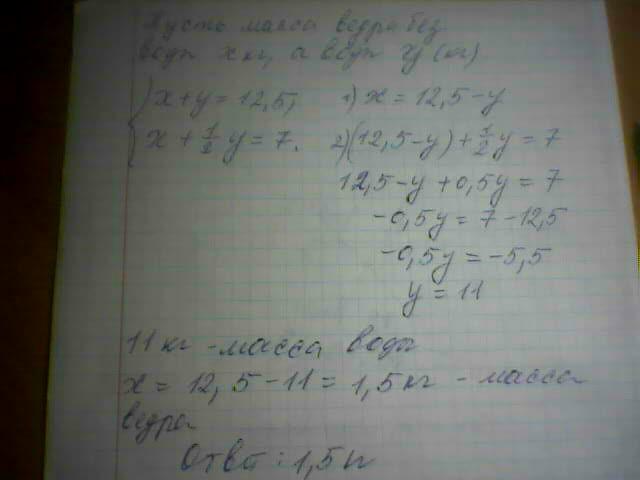 Пусть масса ведра без
воды x кг, а воды y (кг)
{ x + y = 12,5, 1) x = 12,5 - y
x + 1/2 y = 7. 2) (12,5 - y) + 1/2 y = 7
12,5 - y + 0,5y = 7
-0,5y = 7 - 12,5
-0,5y = -5,5
y = 11
11 кг - масса воды
x = 12,5 - 11 = 1,5 кг - масса
ведра
Ответ: 1,5 кг